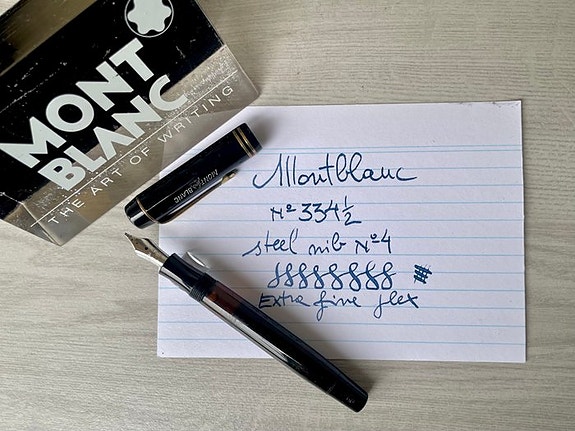 MONT
BLANC
THE ART OF WRITING
MONTBLANC
Montblanc
Nº 334½
steel nib Nº4
Extra fine flex